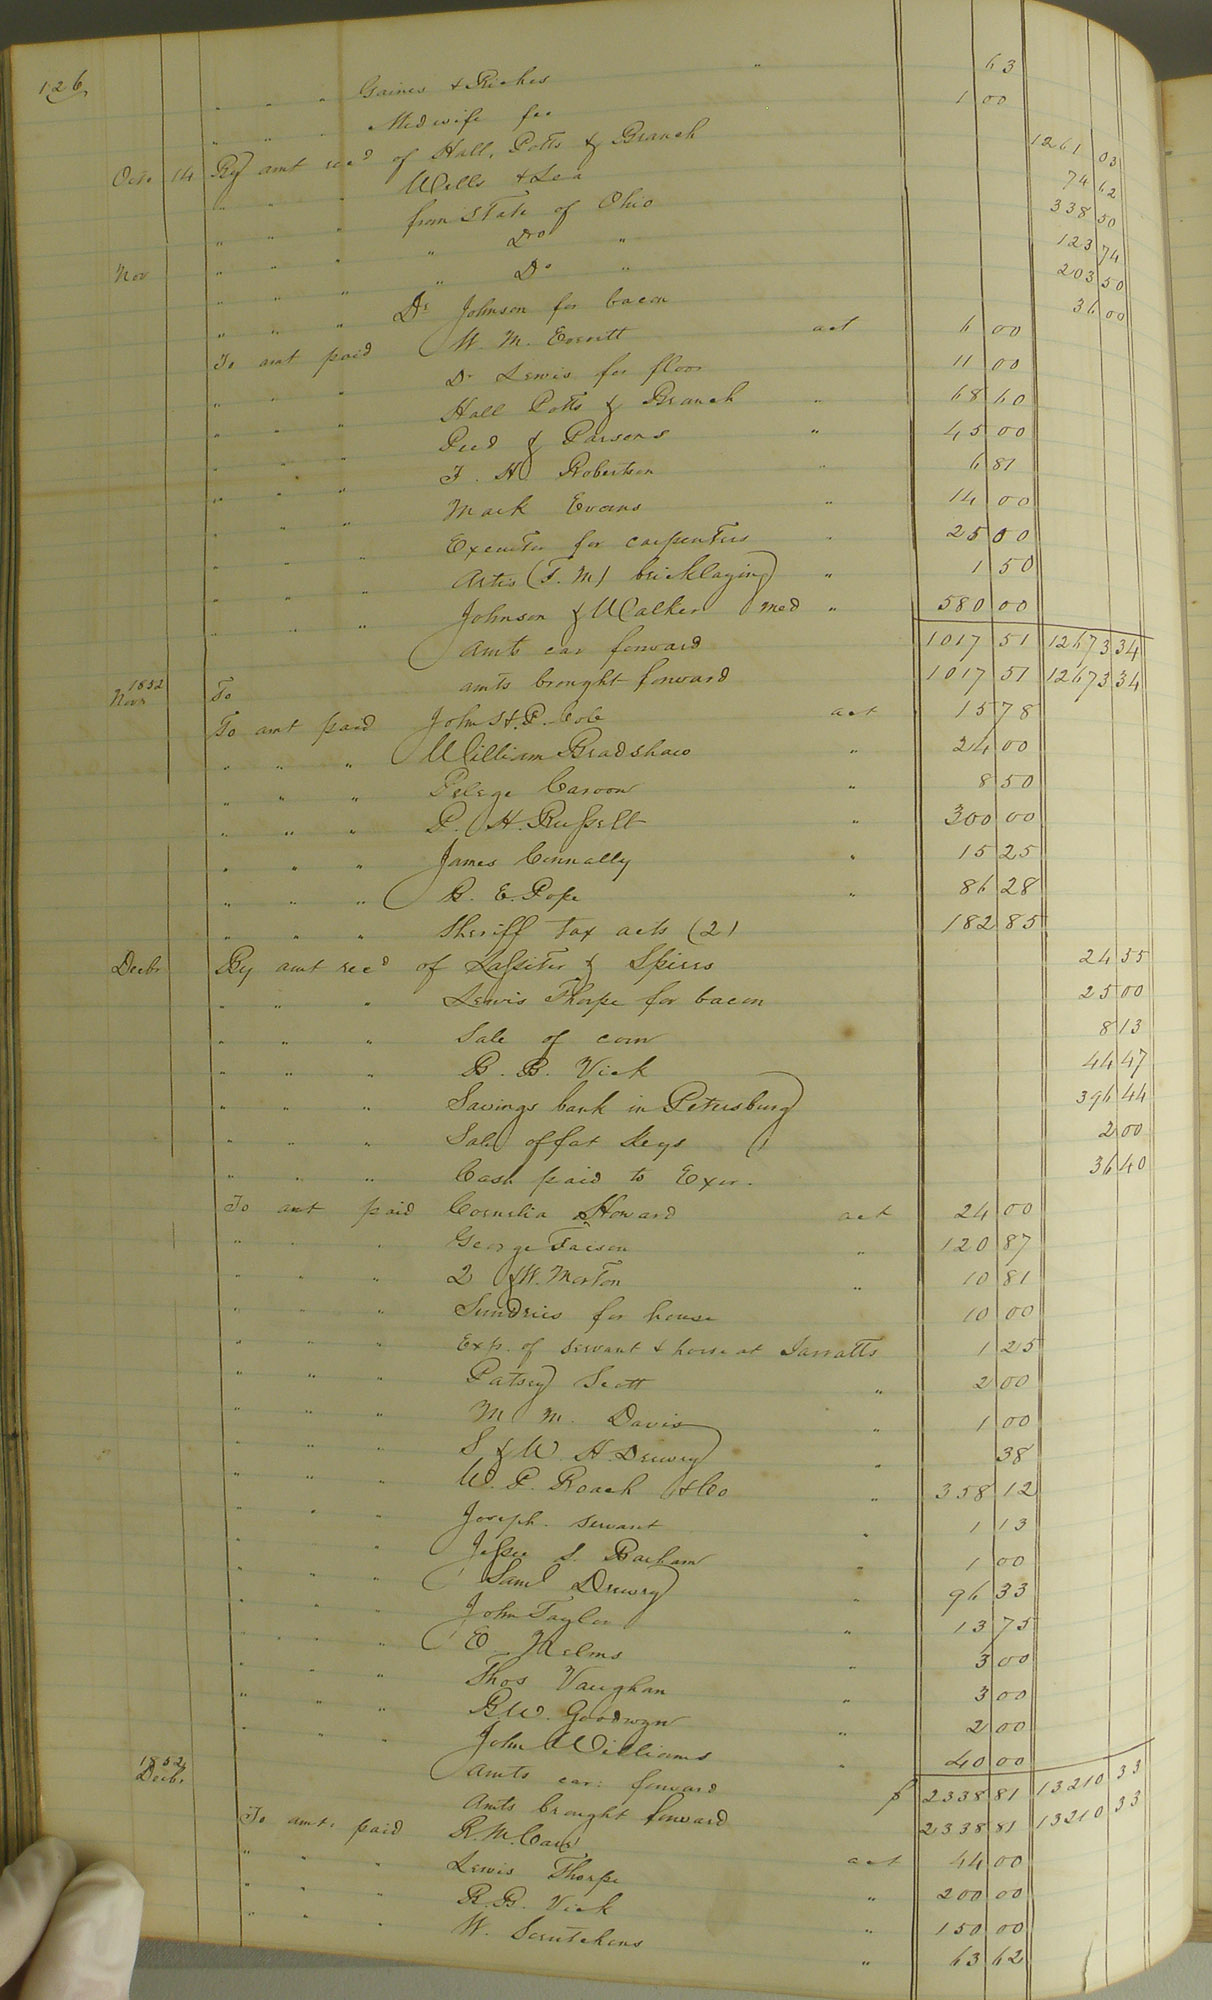 126
" " " Gaines & Riches " 63
" " " Midwife fee 1 00
Octo 14 By amt recd of Hall, Potts & Branch 1261 03
" " " Wells & Lea 74 62
" " " from State of Ohio 338 50
" " " " Do " 123 74
Nov " " " " Do " 203 50
" " " Dr Johnson for bacon 36 00
To amt paid W. M. Everitt act 6 00
" " " Dr Lewis for floor 11 00
" " " Hall Potts & Branch " 68 60
" " " Peed & Parsons " 45 00
" " " T. H. Robertson " 6 81
" " " Mark Evans " 14 00
" " " Executor for carpenters " 25 00
" " " Artis (T. M) bricklaying " 1 50
" " " Johnson & Walker med " 580 00
Amts car forward 1017 51 12673 34
1852
Novr To amts brought forward 1017 51 12673 34
To amt paid John H. P. Cole act 15 78
" " " William Bradshaw " 24 00
" " " Pelege Caroon " 8 50
" " " P. H. Russell " 300 00
" " " James Connally " 15 25
" " " B. E. Pope " 86 28
" " " Sheriff tax acts (2) 182 85
Decbr By amt recd of Lassiter & Spiers 24 55
" " " Lewis Thorpe for bacon 25 00
" " " Sale of corn 8 13
" " " B. B. Vick 44 47
" " " Savings bank in Petersburg 396 44
" " " Sale of fat Kegs 2 00
" " " Cash paid to Exor. 36 40
To amt paid Cornelia Howard act 24 00
" " " George Faison " 120 87
" " " Q & W. Morton " 10 81
" " " Sundries for house 10 00
" " " Exp. of servant & horse at Jarratts 1 25
" " " Patsey Scott " 2 00
" " " M M. Davis " 1 00
" " " S & W. H. Drewry " 38
" " " W. P. Roach & Co " 358 12
" " " Joseph. servant " 1 13
" " " Jesse S. Barham " 1 00
" " " Saml Drewry " 96 33
" " " John Taylor " 13 75
" " " E. Helms " 3 00
" " " Thos Vaughan " 3 00
" " " B. W. Goodwyn " 2 00
" " " John Williams " 40 00
Amts car: forward $ 2338 81 13210 33
1852
Decbr Amts brought forward 2338 81 13210 33
To amt. paid R. M. Carr act 44 00
" " " Lewis Thorpe " 200 00
" " " R. B. Vick " 150 00
" " " W. Scrutchens " 63 62